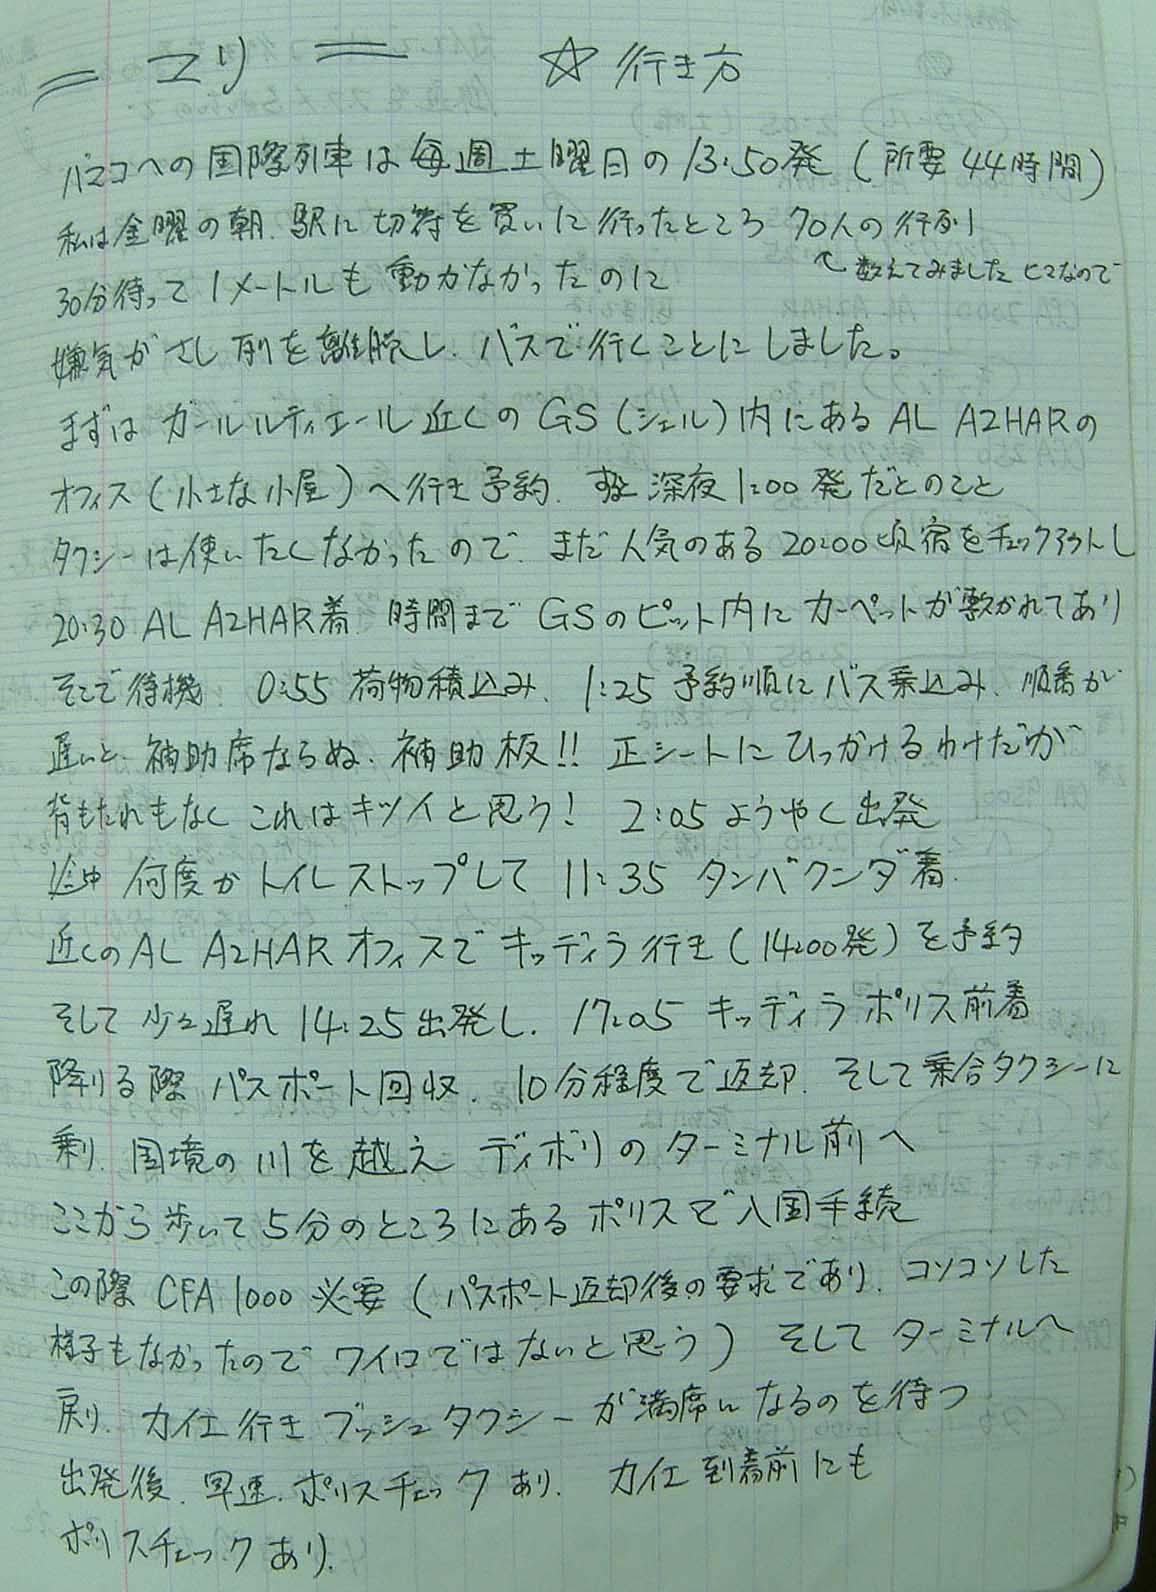 = マリ = ☆ 行き方
バマコへの国際列車は毎週土曜日の13:50発(所要44時間)
私は金曜の朝、駅に切符を買いに行ったところ 70人の行列
↖数えてみました ヒマなので
30分待って1メートルも動かなかったのに
嫌気がさし列を離脱し、バスで行くことにしました。
まずは ガールルティエール近くのGS(シェル)内にあるAL AZHARの
オフィス(小さな小屋)へ行き予約. 深夜1:00発だとのこと
タクシーは使いたくなかったので、まだ人気のある20:00頃宿をチェックアウトし
20:30 AL AZHAR着. 時間までGSのピット内にカーペットが敷かれてあり
そこで待機. 0:55 荷物積込み. 1:25 予約順にバス乗込み. 順番が
遅いと、補助席ならぬ、補助板!! 正シートにひっかけるわけだが
背もたれもなく これはキツイと思う! 2:05 ようやく出発
途中 何度かトイレストップして 11:35 タンバクンダ着.
近くのAL AZHARオフィスでキッディラ行き(14:00発)を予約
そして少々遅れ 14:25出発し. 17:05 キッディラポリス前着
降りる際 パスポート回収. 10分程度で返却. そして乗合タクシーに
乗り. 国境の川を越え ディボリのターミナル前へ
ここから歩いて5分のところにあるポリスで入国手続
この際 CFA 1000 必要(パスポート返却後の要求であり、コソコソした
様子もなかったのでワイロではないと思う) そしてターミナルへ
戻り. カイ行きブッシュタクシーが満席になるのを待つ
出発後. 早速. ポリスチェックあり. カイ到着前にも
ポリスチェックあり.